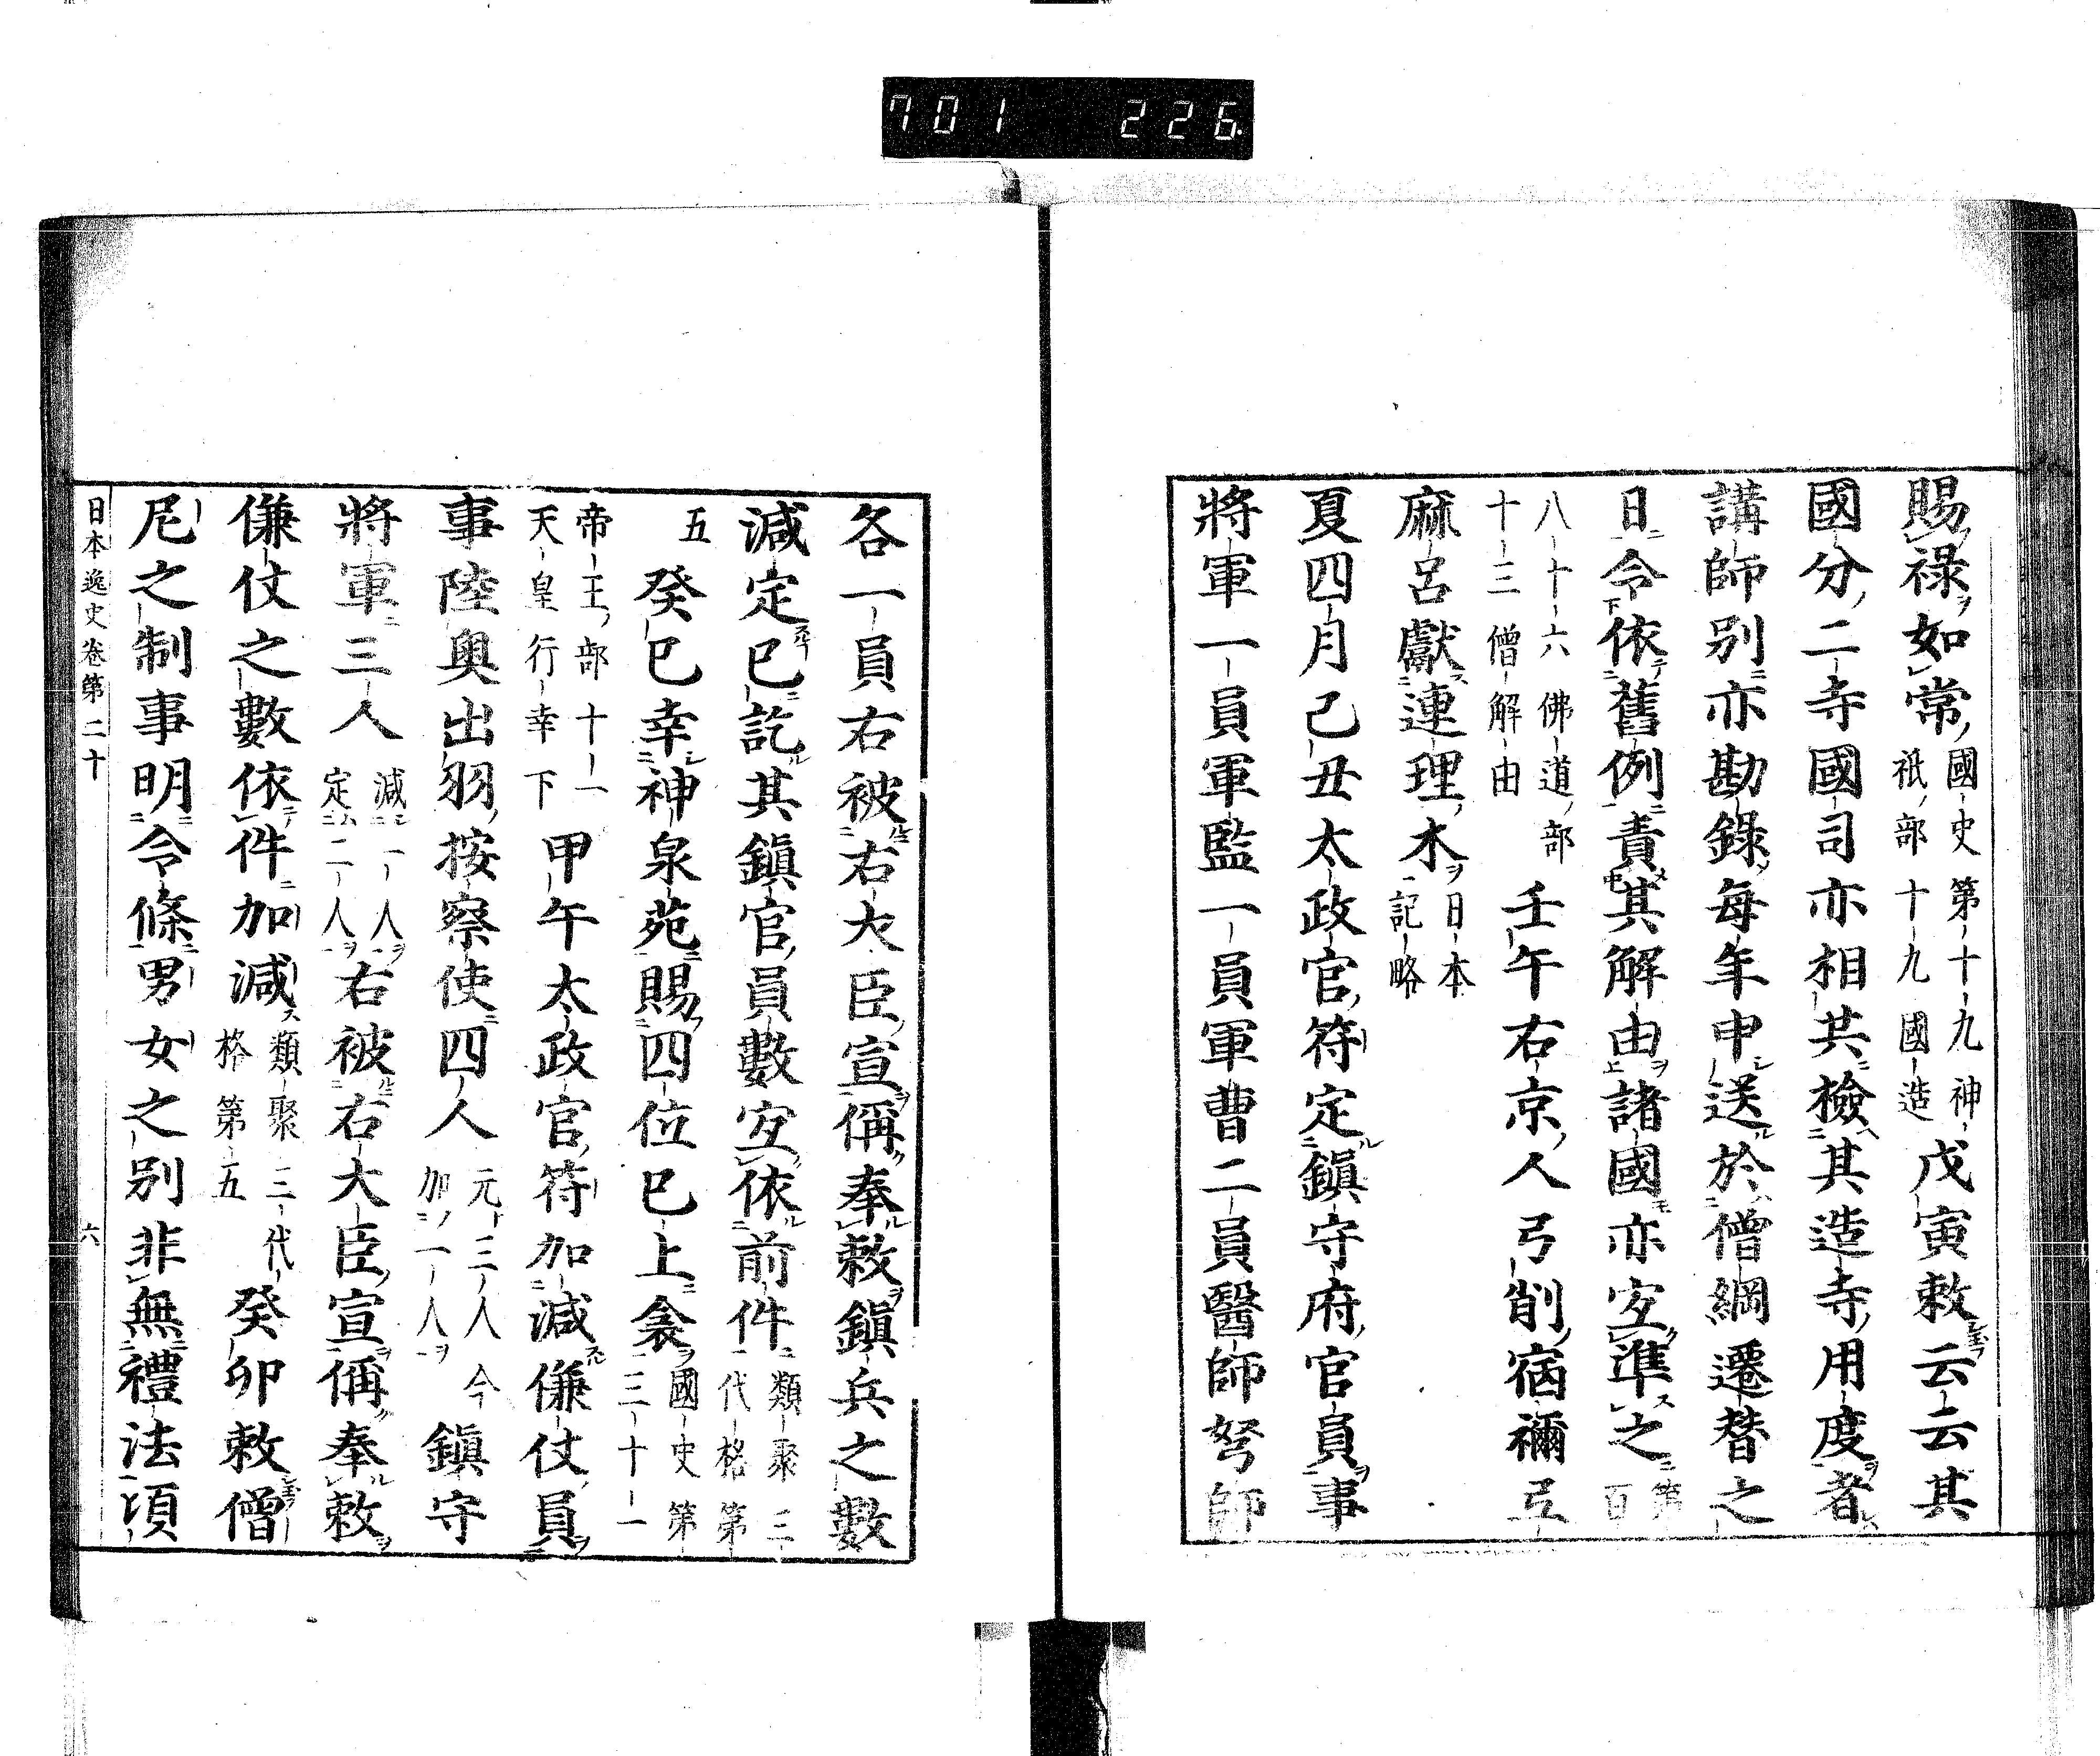 701 226
賜祿如常國史第十九神祇部十九國造戊寅敕云云其
國分二寺國司亦相共檢其造寺用度者
講師別亦勘錄每年申送於僧綱遷替之
日令依舊例責其解由諸國亦宜準之第百
八十六佛道部十三僧解由壬午右京人弓削宿禰弓
麻呂獻連理木日本記略
夏四月己丑太政官符定鎭守府官員事
將軍一員軍監一員軍曹二員醫師弩師
各一員右被右大臣宣偁奉敕鎭兵之數
減定已訖其鎭官員數宜依前件類聚三代格第
五癸巳幸神泉苑賜四位已上衾國史第三十一
帝王部十一天皇行幸下甲午太政官符加減傔仗員
事陸奧出羽按察使四人元三人今加一人鎭守
將軍三人減一人定二人右被右大臣宣偁奉敕
傔仗之數依件加減類聚三代格第五癸卯敕僧
尼之制事明令條男女之別非無禮法頃
日本逸史卷第二十 六